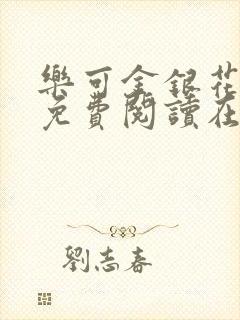 樂可金銀花
免費閱讀在
劉志春